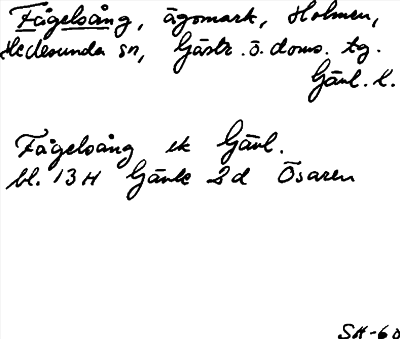 Fågelsång, ägomark, Holmen,
Hedesunda sn, Gästr. ö. doms. tg.
Gävl. l.
Fågelsång ek Gävl.
bl. 13 H Gävle 2d Ösaren
SH-60